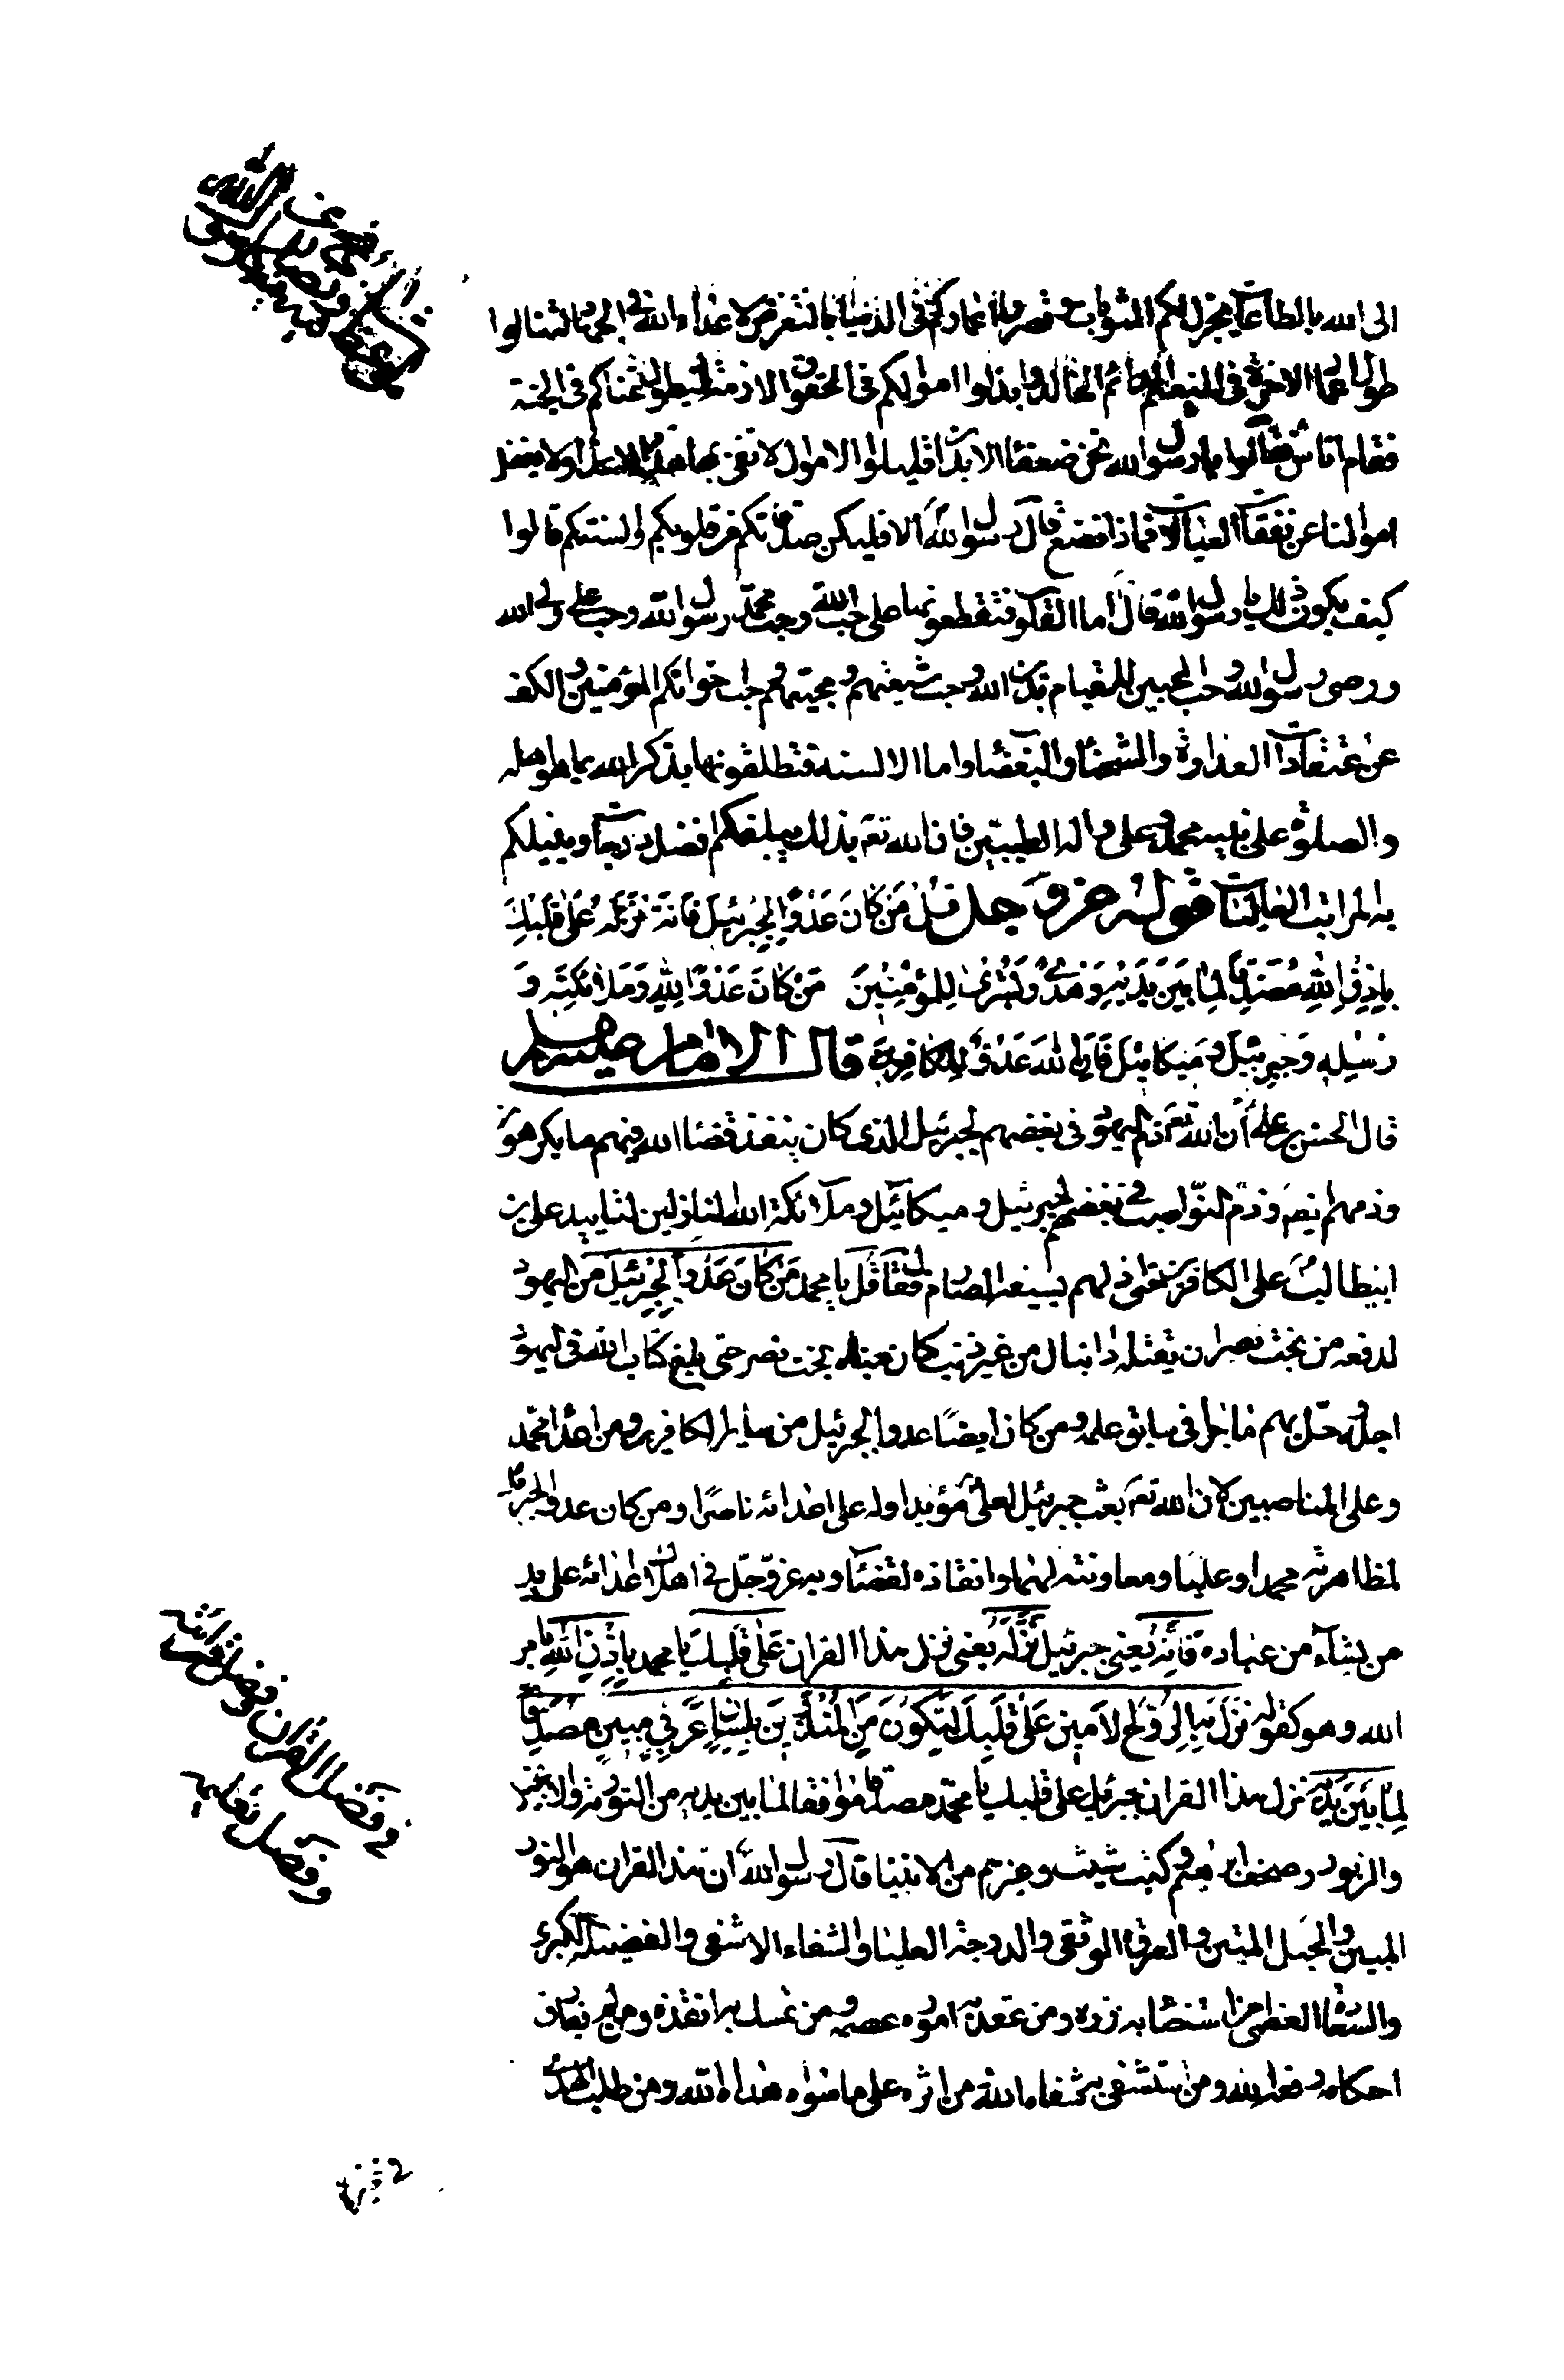 الى الله بالطاعات يجزل لكم المثوبات وقصروا اعماركم في الدنيا بالتعرض لاعداء الله في الجهاد لتنالوا
طول اعمار الاخرة في النعيم الدائم الخالد وابذلوا اموالكم في الحقوق اللازمة ليطول غناكم في الجنة
فقام اناس فقالوا يا رسول الله نحن ضعفاء الابدان قليلوا الاموال لا نفي بمجاهدة الاعداء ولا يفضل
اموالنا عن نفقات العيالات فماذا نصنع قال رسول الله الا فليكن صدقاتكم من قلوبكم والسنتكم قالوا
كيف يكون ذلك يا رسول الله قال اما القلوب فتقطعونها على حب الله وحب محمد رسول الله وحب علي ولي الله
ووصي رسول الله وحب المنتجبين للقيام بدين الله وحب شيعتهم ومحبيهم وحب اخوانكم المؤمنين والكف
عن اعتقادات العداوة والشحناء والبغضاء واما الالسنة فتطلقونها بذكر الله بما هو اهله
والصلوة على نبيه محمد وعلى واله الطيبين فان الله تعه بذلك يبلغكم افضل الدرجات وينيلكم
به المراتب العاليات قوله عز وجل قُلْ مَنْ كَانَ عَدُوًّا لِجِبْرِئِيلَ فَاِنَّهُ نَزَّلَهُ عَلَى قَلْبِكَ
بِاِذْنِ اللهِ مُصَدِّقًا لِمَا بَيْنَ يَدَيْهِ وَهُدًى وَبُشْرَى لِلْمُؤْمِنِينَ مَنْ كَانَ عَدُوًّا لِلهِ وَمَلَائِكَتِهِ وَ
رُسُلِهِ وَجِبْرِئِيلَ وَمِيكَائِيلَ فَاِنَّ اللهَ عَدُوٌّ لِلْكَافِرِينَ قال الامام عليه السلام
قال الحسن بن علي ان الله تعه ذم اليهود في بغضهم لجبرئيل الذي كان ينفذ قضاء الله فيهم ما يكرهون
وذمهم ايضه وذم النواصب في بغضهم لجبرئيل وميكائيل وملائكة الله النازلين لتاييد علي بن
ابيطالب على الكافرين حتى اذلهم بسيفه الصارم فقال قل يا محمد مَنْ كَانَ عَدُوًّا لِجِبْرِئِيلَ من اليهود
لدفعه من بخت نصر ان يقتله دانيال من غير ذنب كان جناه بخت نصر حتى بلغ كتاب الله في اليهود
اجله وحل بهم ما جرى في سابق علمه ومن كان ايضًا عدوا لجبرئيل من ساير الكافرين ومن اعداء محمد
وعلى المناصبين لان الله تعه بعث جبرئيل لعلي مؤيدا وله على اعدائه ناصرًا ومن كان عدوا لجبرئيل
لمظاهرته محمدا وعليا ومعاونته لهما وانفاذه لقضاء ربه عز وجل في اهلاك اعدائه على يد
من يشاء من عباده فَاِنَّهُ يعني جبرئيل نَزَّلَهُ يعني نزل هذا القران عَلَى قَلْبِكَ يا محمد بِاِذْنِ اللهِ بامر
الله وهو كقوله نَزَلَ بِهِ الرُّوحُ الْاَمِينُ عَلَى قَلْبِكَ لِتَكُونَ مِنَ الْمُنْذِرِينَ بِلِسَانٍ عَرَبِيٍّ مُبِينٍ مُصَدِّقًا
لِمَا بَيْنَ يَدَيْهِ نزل هذا القران جبرئيل على قلبك يا محمد مصدقا موافقا لما بين يديه من التورية والانجيل
والزبور وصحف ابرهيم وكتب شيث وغيرهم من الانبياء قال رسول الله ان هذا القران هو النور
المبين والحبل المتين والعروة الوثقى والدرجة العليا والشفاء الاشفى والفضيلة الكبرى
والسعادة العظمى من استضاء به نوره ومن عقد به اموره عصمه ومن تمسك به انقذه ومن لم يفارق
احكامه رفعه الله ومن استشفى به شفاه الله من اثره على ما سواه هداه الله ومن طلب الهدى
في فضل القران وفضل قرائته
وفضل تعليمه